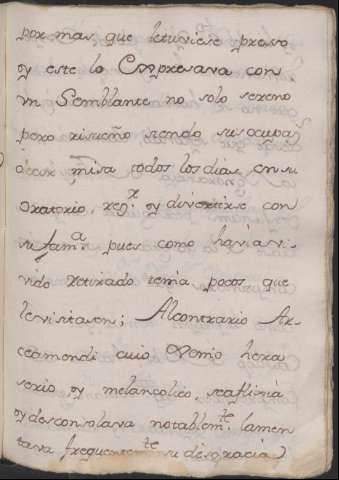 por mas que letuviese preso
y este lo Expresava con
vn Semblante no solo sereno
pero risueño siendo su ocupa
ocor misa todos los dias, en su
oratorio, rez.r y divertirse con
su fam.a pues como havia vi-
vido retirado tenia pocos que
levisitasen; Alcontrario Ar-
ceamendi cuio Genio hera
serio y melancolico, seaflixia
y desconsolava notablem.te lamen
tava frequentem.te su desgracia